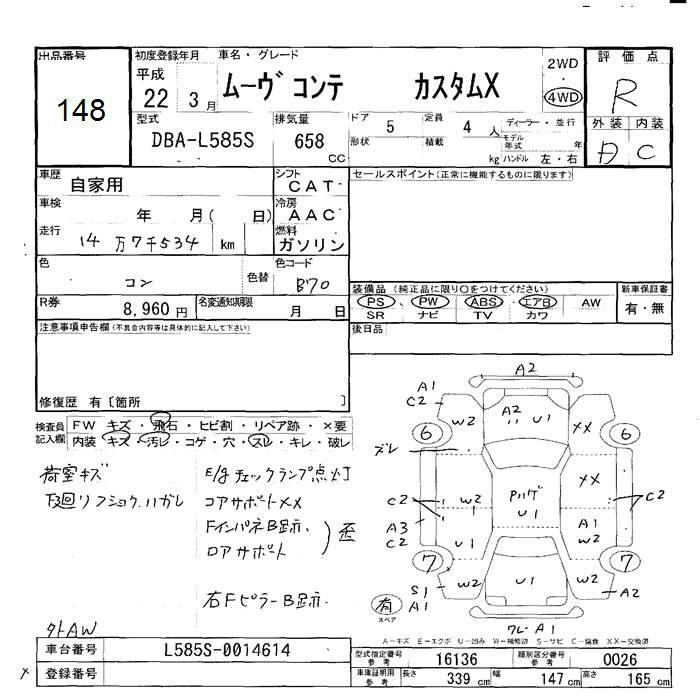 出品番号
148
初度登録年月
平成
22 3月
車名・グレード
ムーヴ コンテ カスタムX
2WD
・
4WD
評価点
R
外装 内装
C
型式
DBA-L585S
排気量
658
CC
ドア
5
形状
定員
4人
積載
kg
ディーラー・並行
モデル
年式
年
ハンドル 左・右
車歴
自家用
シフト
CAT
車検
年 月( 日)
冷房
AAC
走行
14万7千534 km
燃料
ガソリン
色
コン
色替
色コード
B70
R券
8,960円
名変通知期限
月 日
セールスポイント(正常に機能するものに限ります)
装備品 (純正品に限り〇をつけてください)
PS、PW ABS・エアB AW
SR ナビ TV カワ
新車保証書
有・無
後日品
注意事項申告欄(不具合内容等は具体的に記入して下さい)
修復歴 有〔箇所 〕
検査員
記入欄
FW キズ・飛石・ヒビ割・リペア跡・×要
内装・キズ・汚レ・コゲ・穴・スレ・キレ・破レ
荷室キズ
下廻リフショク、ハガレ
E/gチェックランプ点灯
コアサポートXX
FインパネB跡示、
ロアサポート
歪
右FピラーB跡示、
外AW
A2
A1
C2
W2
A2
U1
XX
6
6
ズレ
C2
A3
C2
W2
Pハゲ
U1
XX
C2
A1
W2
U1
7
7
S1
A1
W2
U1
W2
A2
有
スペア
ワレ・A1
A-キズ E-エクボ U-凹み W-補修跡 S-サビ C-腐食 XX-交換済
車台番号
L585S-0014614
× 登録番号
型式指定番号
参考
16136
類別区分番号
参考
0026
車庫証明用
参考
長さ
339 cm
幅
147 cm
高さ
165 cm